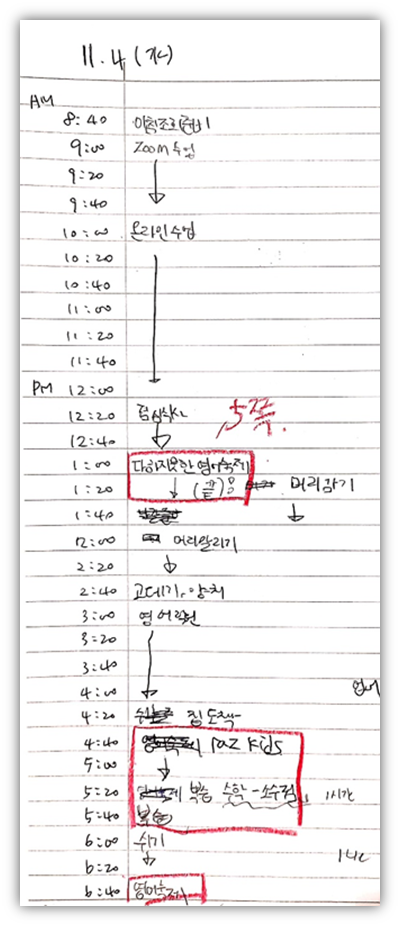 11.4 (水)
AM
8:40 아침조회준비
9:00 ZOOM 수업
9:20
9:40
10:00 온라인수업
10:20
10:40
11:00
11:20
11:40
PM 12:00
12:20 점심식사
12:40 5쪽
1:00 다하지못한 영어숙제
1:20 (끝) 머리감기
1:40
2:00 머리말리기
2:20
2:40 고데기, 양치
3:00 영어학원
3:20
3:40
4:00
4:20 집 도착
4:40 raz kids
5:00
5:20 복습 수학-소수점 1시간
5:40 복습
6:00 쉬기
6:20
6:40 영어숙제